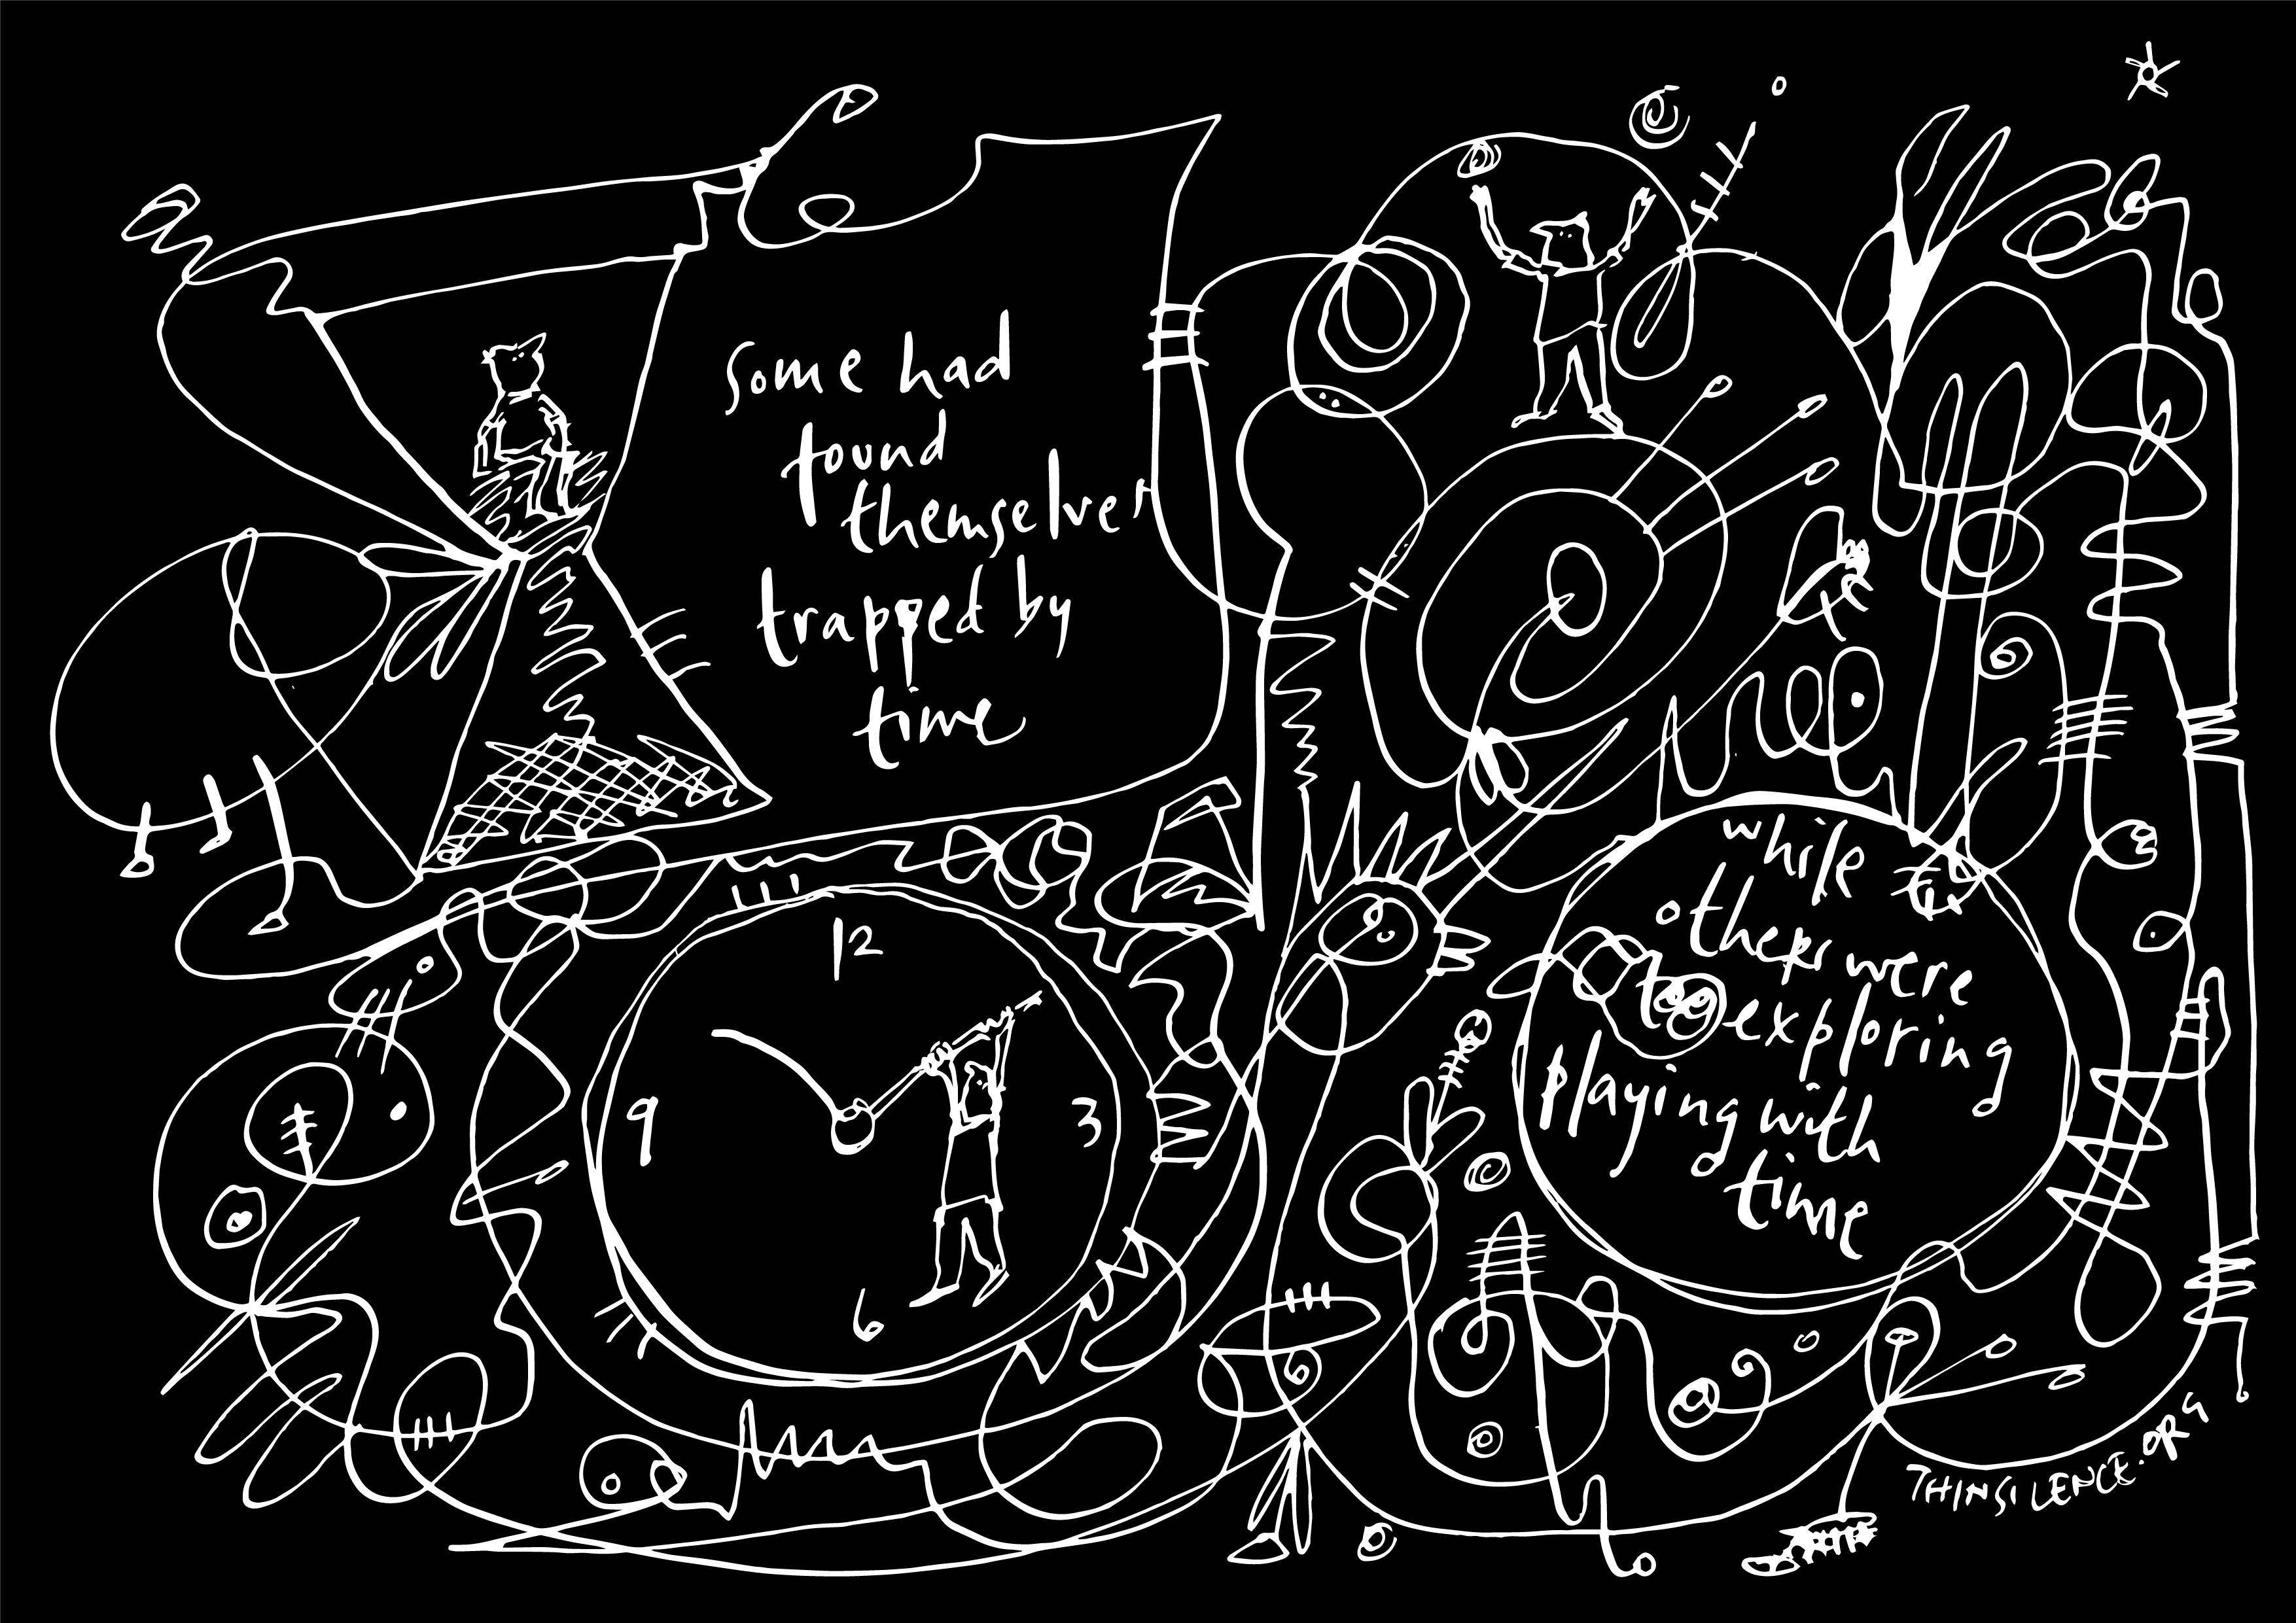 Some had
found
themselves
trapped by
time
12
9
3
6
while
others were
exploring
playing with
time
THINSILENCE.ORG